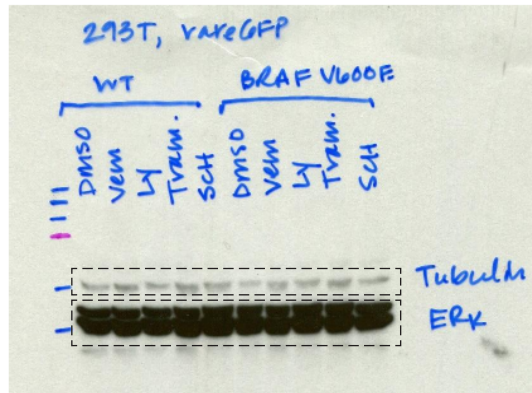 293T, rareGFP
WT BRAF V600E
DMSO Vem Ly Tram. SCH DMSO Vem Ly Tram. SCH
Tubulin
ERK